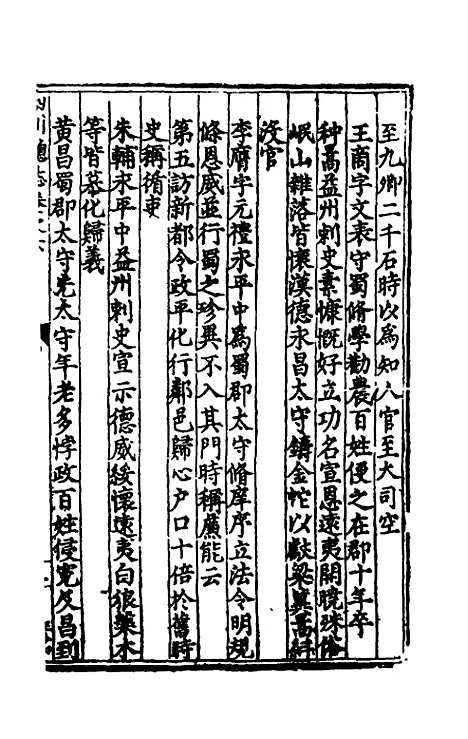 至九卿二千石時以為知人官至大司空
王商字文表守蜀脩學勸農百姓便之在郡十年卒
种暠益州刺史素慷慨好立功名宣恩遠夷開曉殊俗
岷山雜落皆懷漢德永昌太守鑄金蛇以獻梁冀暠糾
没官
李膺字元禮永平中為蜀郡太守脩庠序立法令明規
條恩威並行蜀之珍異不入其門時稱廉能云
第五訪新都令政平化行鄰邑歸心户口十倍於舊時
史稱循吏
朱輔永平中益州刺史宣示德威綏懷遠夷白狼槃木
等皆慕化歸義
黄昌蜀郡太守先太守年老多悖政百姓侵寃及昌到
四川總志卷之六